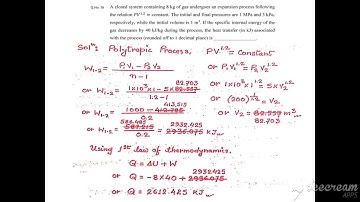 A closed system containing 8 kg of gas undergoes an expansion process following
the relation PV^1.2 = constant. The initial and final pressures are 1 MPa and 5 kPa,
respectively, while the initial volume is 1 m³. If the specific internal energy of the
gas decreases by 40 kJ/kg during the process, the heat transfer (in kJ) associated
with the process (rounded off to 1 decimal place) is
Solⁿ Polytropic Process, PV^1.2 = Constant
W1-2 = P1V1 - P2V2 / n-1
or P1V1^1.2 = P2V2^1.2
or W1-2 = 1×10³×1 - 5×82.557 / 1.2-1
82.703
or 1×10³×1^1.2 = 5×V2^1.2
or (200)^1/1.2 = V2
or W1-2 = 1000 - 412.785 / 0.2
413.515
or V2 = 82.557 m³
82.703
or W1-2 = 587.215 / 0.2 = 2936.075 KJ
586.485 2932.425
Using 1st law of thermodynamics.
Q = ΔU + W
2932.425
or Q = -8×40 + 2936.075
or Q = 2612.425 KJ
icecream
APPS